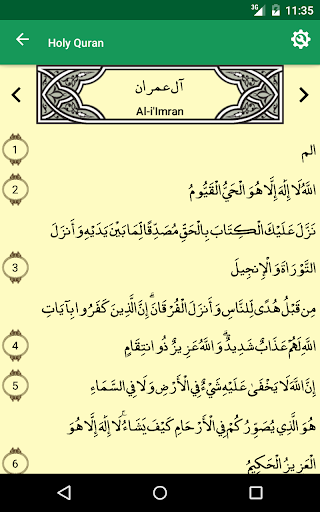 3G 11:35
Holy Quran
آل عمران
Al-i'Imran
1 الم
2 اللَّهُ لَا إِلَٰهَ إِلَّا هُوَ الْحَيُّ الْقَيُّومُ
نَزَّلَ عَلَيْكَ الْكِتَابَ بِالْحَقِّ مُصَدِّقًا لِّمَا بَيْنَ يَدَيْهِ وَأَنزَلَ
3 التَّوْرَاةَ وَالْإِنجِيلَ
مِن قَبْلُ هُدًى لِّلنَّاسِ وَأَنزَلَ الْفُرْقَانَ ۗ إِنَّ الَّذِينَ كَفَرُوا بِآيَاتِ
4 اللَّهِ لَهُمْ عَذَابٌ شَدِيدٌ ۗ وَاللَّهُ عَزِيزٌ ذُو انتِقَامٍ
5 إِنَّ اللَّهَ لَا يَخْفَىٰ عَلَيْهِ شَيْءٌ فِي الْأَرْضِ وَلَا فِي السَّمَاءِ
هُوَ الَّذِي يُصَوِّرُكُمْ فِي الْأَرْحَامِ كَيْفَ يَشَاءُ ۚ لَا إِلَٰهَ إِلَّا هُوَ
6 الْعَزِيزُ الْحَكِيمُ